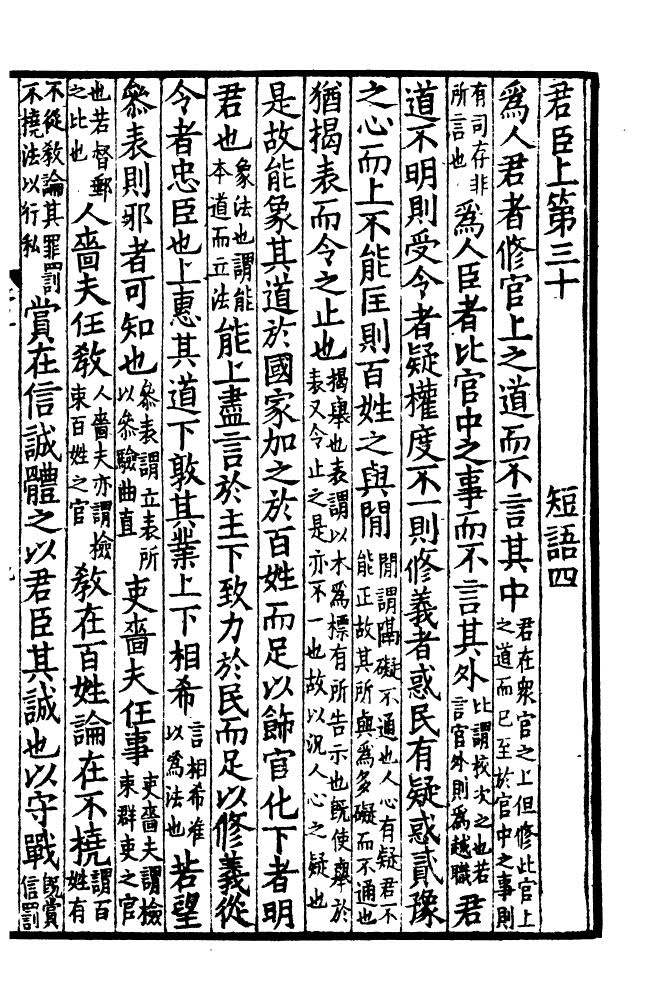 君臣上第三十　短語四
爲人君者修官上之道而不言其中君在衆官之上但修此官上之道而已至於官中之事則
有司存非所言也爲人臣者比官中之事而不言其外比謂校次之也若言官外則爲越職君
道不明則受令者疑權度不一則修義者惑民有疑惑貳豫
之心而上不能匡則百姓之與閒閒謂隔礙不通也人心有疑君不能正故其所與爲多礙而不通也
猶揭表而令之止也揭舉也表謂以木爲標有所告示也旣使舉於表又令止之是亦不一也故以況人心之疑也
是故能象其道於國家加之於百姓而足以飾官化下者明
君也象法也謂能本道而立法能上盡言於主下致力於民而足以修義從
令者忠臣也上惠其道下敦其業上下相希言相希准以爲法也若望
叅表則邪者可知也叅表謂立表所以叅驗曲直吏嗇夫任事吏嗇夫謂檢束群吏之官
也若督郵之比也人嗇夫任敎人嗇夫亦謂檢束百姓之官敎在百姓論在不撓謂百姓有
不從敎論其罪罰不撓法以行私賞在信誠體之以君臣其誠也以守戰旣賞信罰